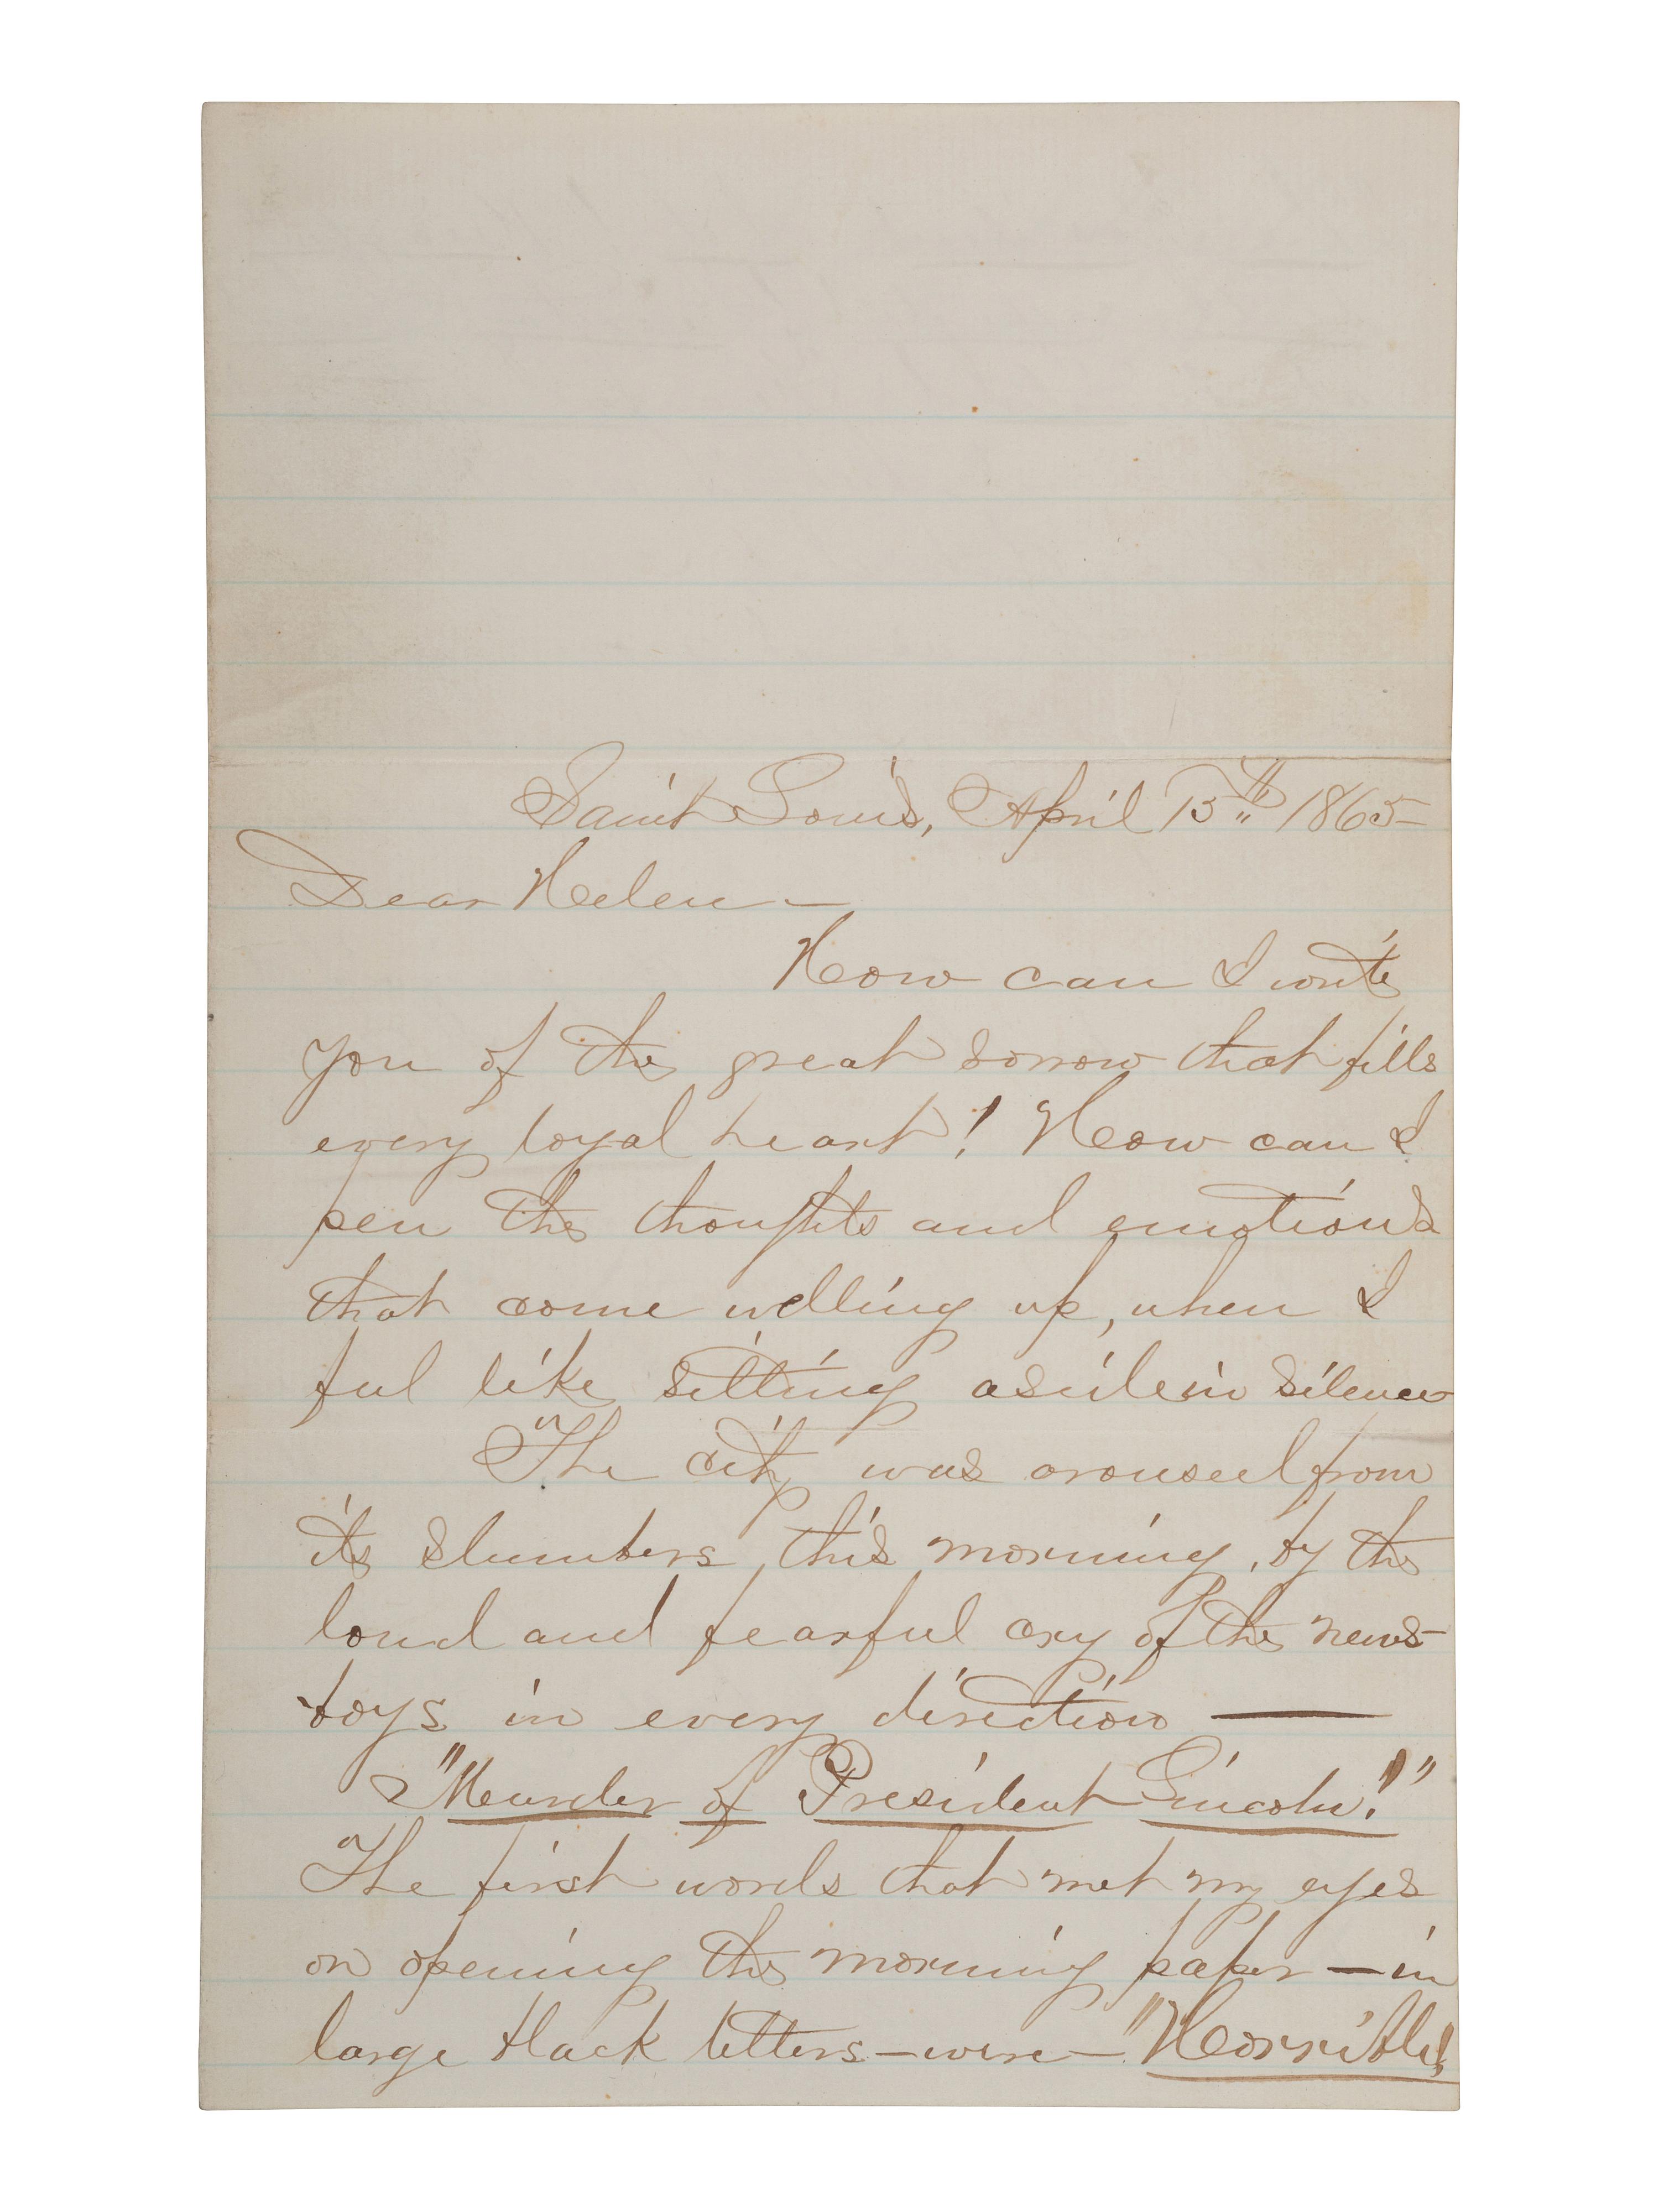 Saint Louis, April 15th 1865-
Dear Helen -
How can I write
you of the great sorrow that fills
every loyal heart! How can I
pen the thoughts and emotions
that come welling up, when I
feel like sitting aside in silence
The city was aroused from
its slumbers, this morning, by the
loud and fearful cry of the news-
boys in every direction —
"Murder of President Lincoln!"
The first words that met my eyes
on opening the morning paper — in
large black letters - were - "Horrible,